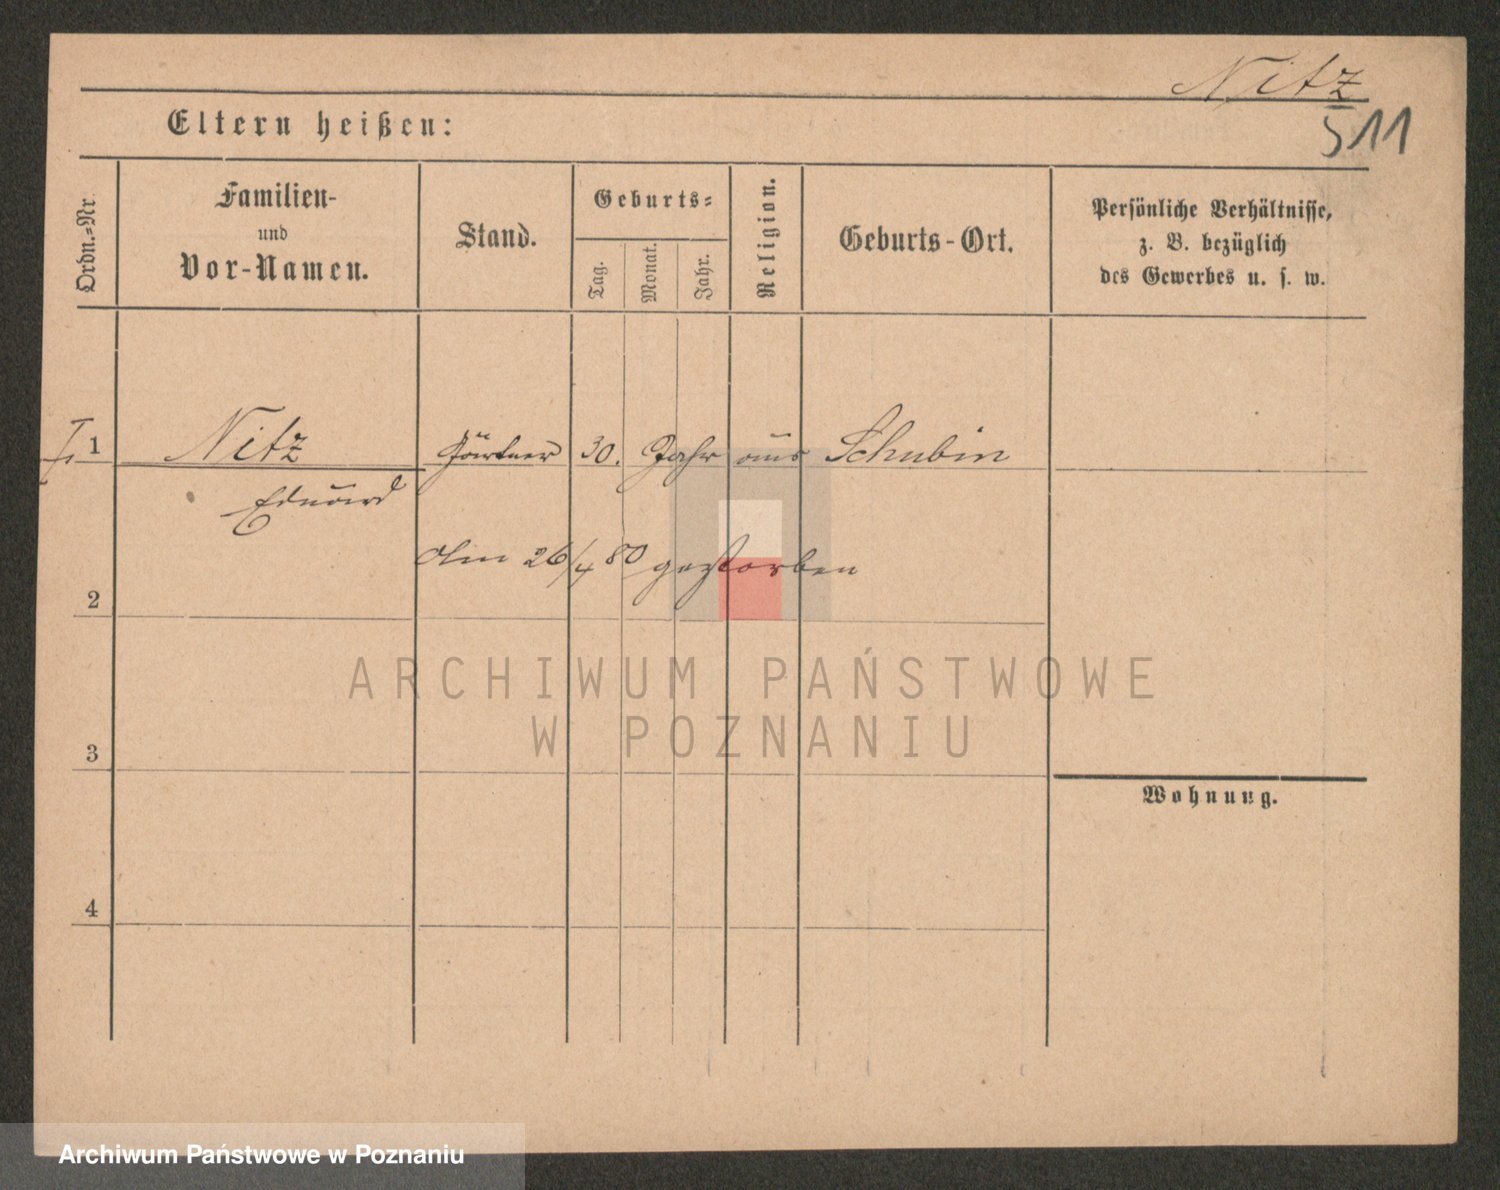 Nitz
511
Eltern heißen:
Ordn.-Nr.
Familien-
und
Vor-Namen.
Stand.
Geburts-
Tag.
Monat.
Jahr.
Religion.
Geburts-Ort.
Persönliche Verhältnisse,
z. B. bezüglich
des Gewerbes u. s. w.
1 Nitz Gärtner 30. Jahr aus Schubin
Eduard
Am 26/4 80 gestorben
2
ARCHIWUM PAŃSTWOWE
W POZNANIU
3
Wohnung.
4
Archiwum Państwowe w Poznaniu